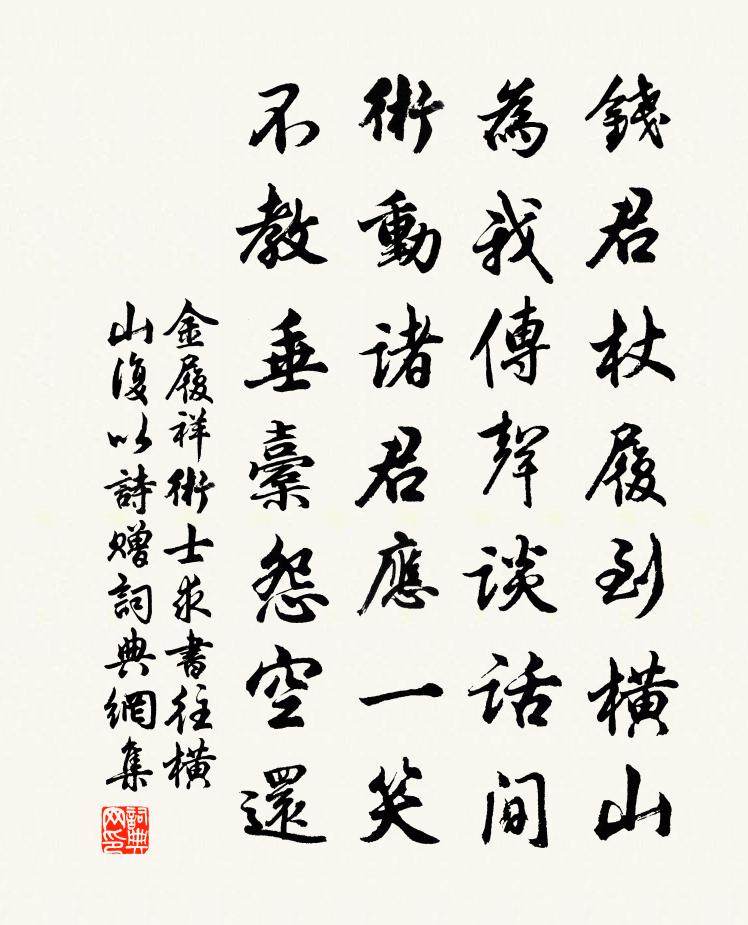 錢君杖履到橫山
為我傳聲談話間
術動諸君應一笑
不教垂橐怨空還
金履祥術士求書往橫
山復以詩贈詞典網集
詞典網印